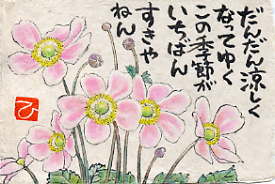 だんだん涼しく
なってゆく
この季節が
いちばん
すきや
ねん
ひ